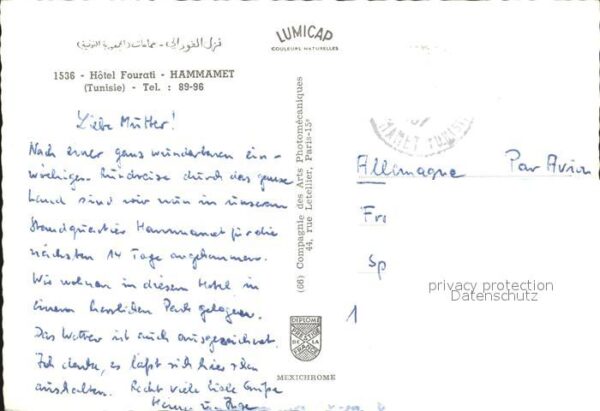 نزل الفوراتي - حمامات (الجمهورية التونسية)
1536 - Hôtel Fourati - HAMMAMET
(Tunisie) - Tel. : 89-96
LUMICAP
COULEURS NATURELLES
Liebe Mutter!
Nach einer ganz wunderbaren ein-
wöchigen Rundreise durch das ganze
Land sind wir nun in unserem
Standquartier Hammamet für die
nächsten 14 Tage angekommen.
Wir wohnen in diesem Hotel in
einem herrlichen Park gelegen.
Das Wetter ist auch ausgezeichnet.
Ich denke, es läßt sich hier
aushalten. Recht viele liebe Grüße
(66) Compagnie des Arts Photomécaniques
44, rue Letellier, Paris-15e
MAMET TUNISIE
Allemagne Par Avion
Fr
Sp
1
privacy protection
Datenschutz
DIPLOME
DE LA
MEXICHROME